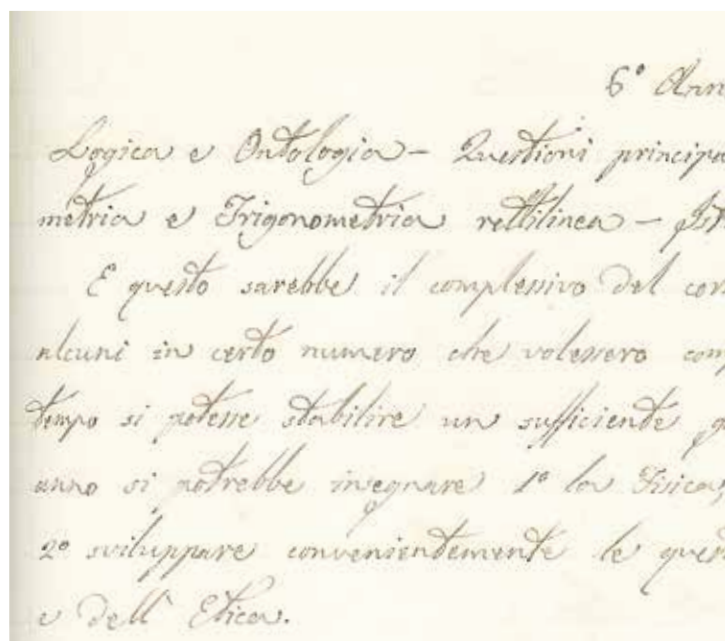 6° Ann
Logica e Ontologia – Questioni principa
metria e Trigonometria rettilinea – Ist
E questo sarebbe il complessivo del cor
alcuni in certo numero che volessero comp
tempo si potesse stabilire un sufficiente
anno si potrebbe insegnare 1° la Fisica,
2° sviluppare convenientemente le quest
e dell' Etica.